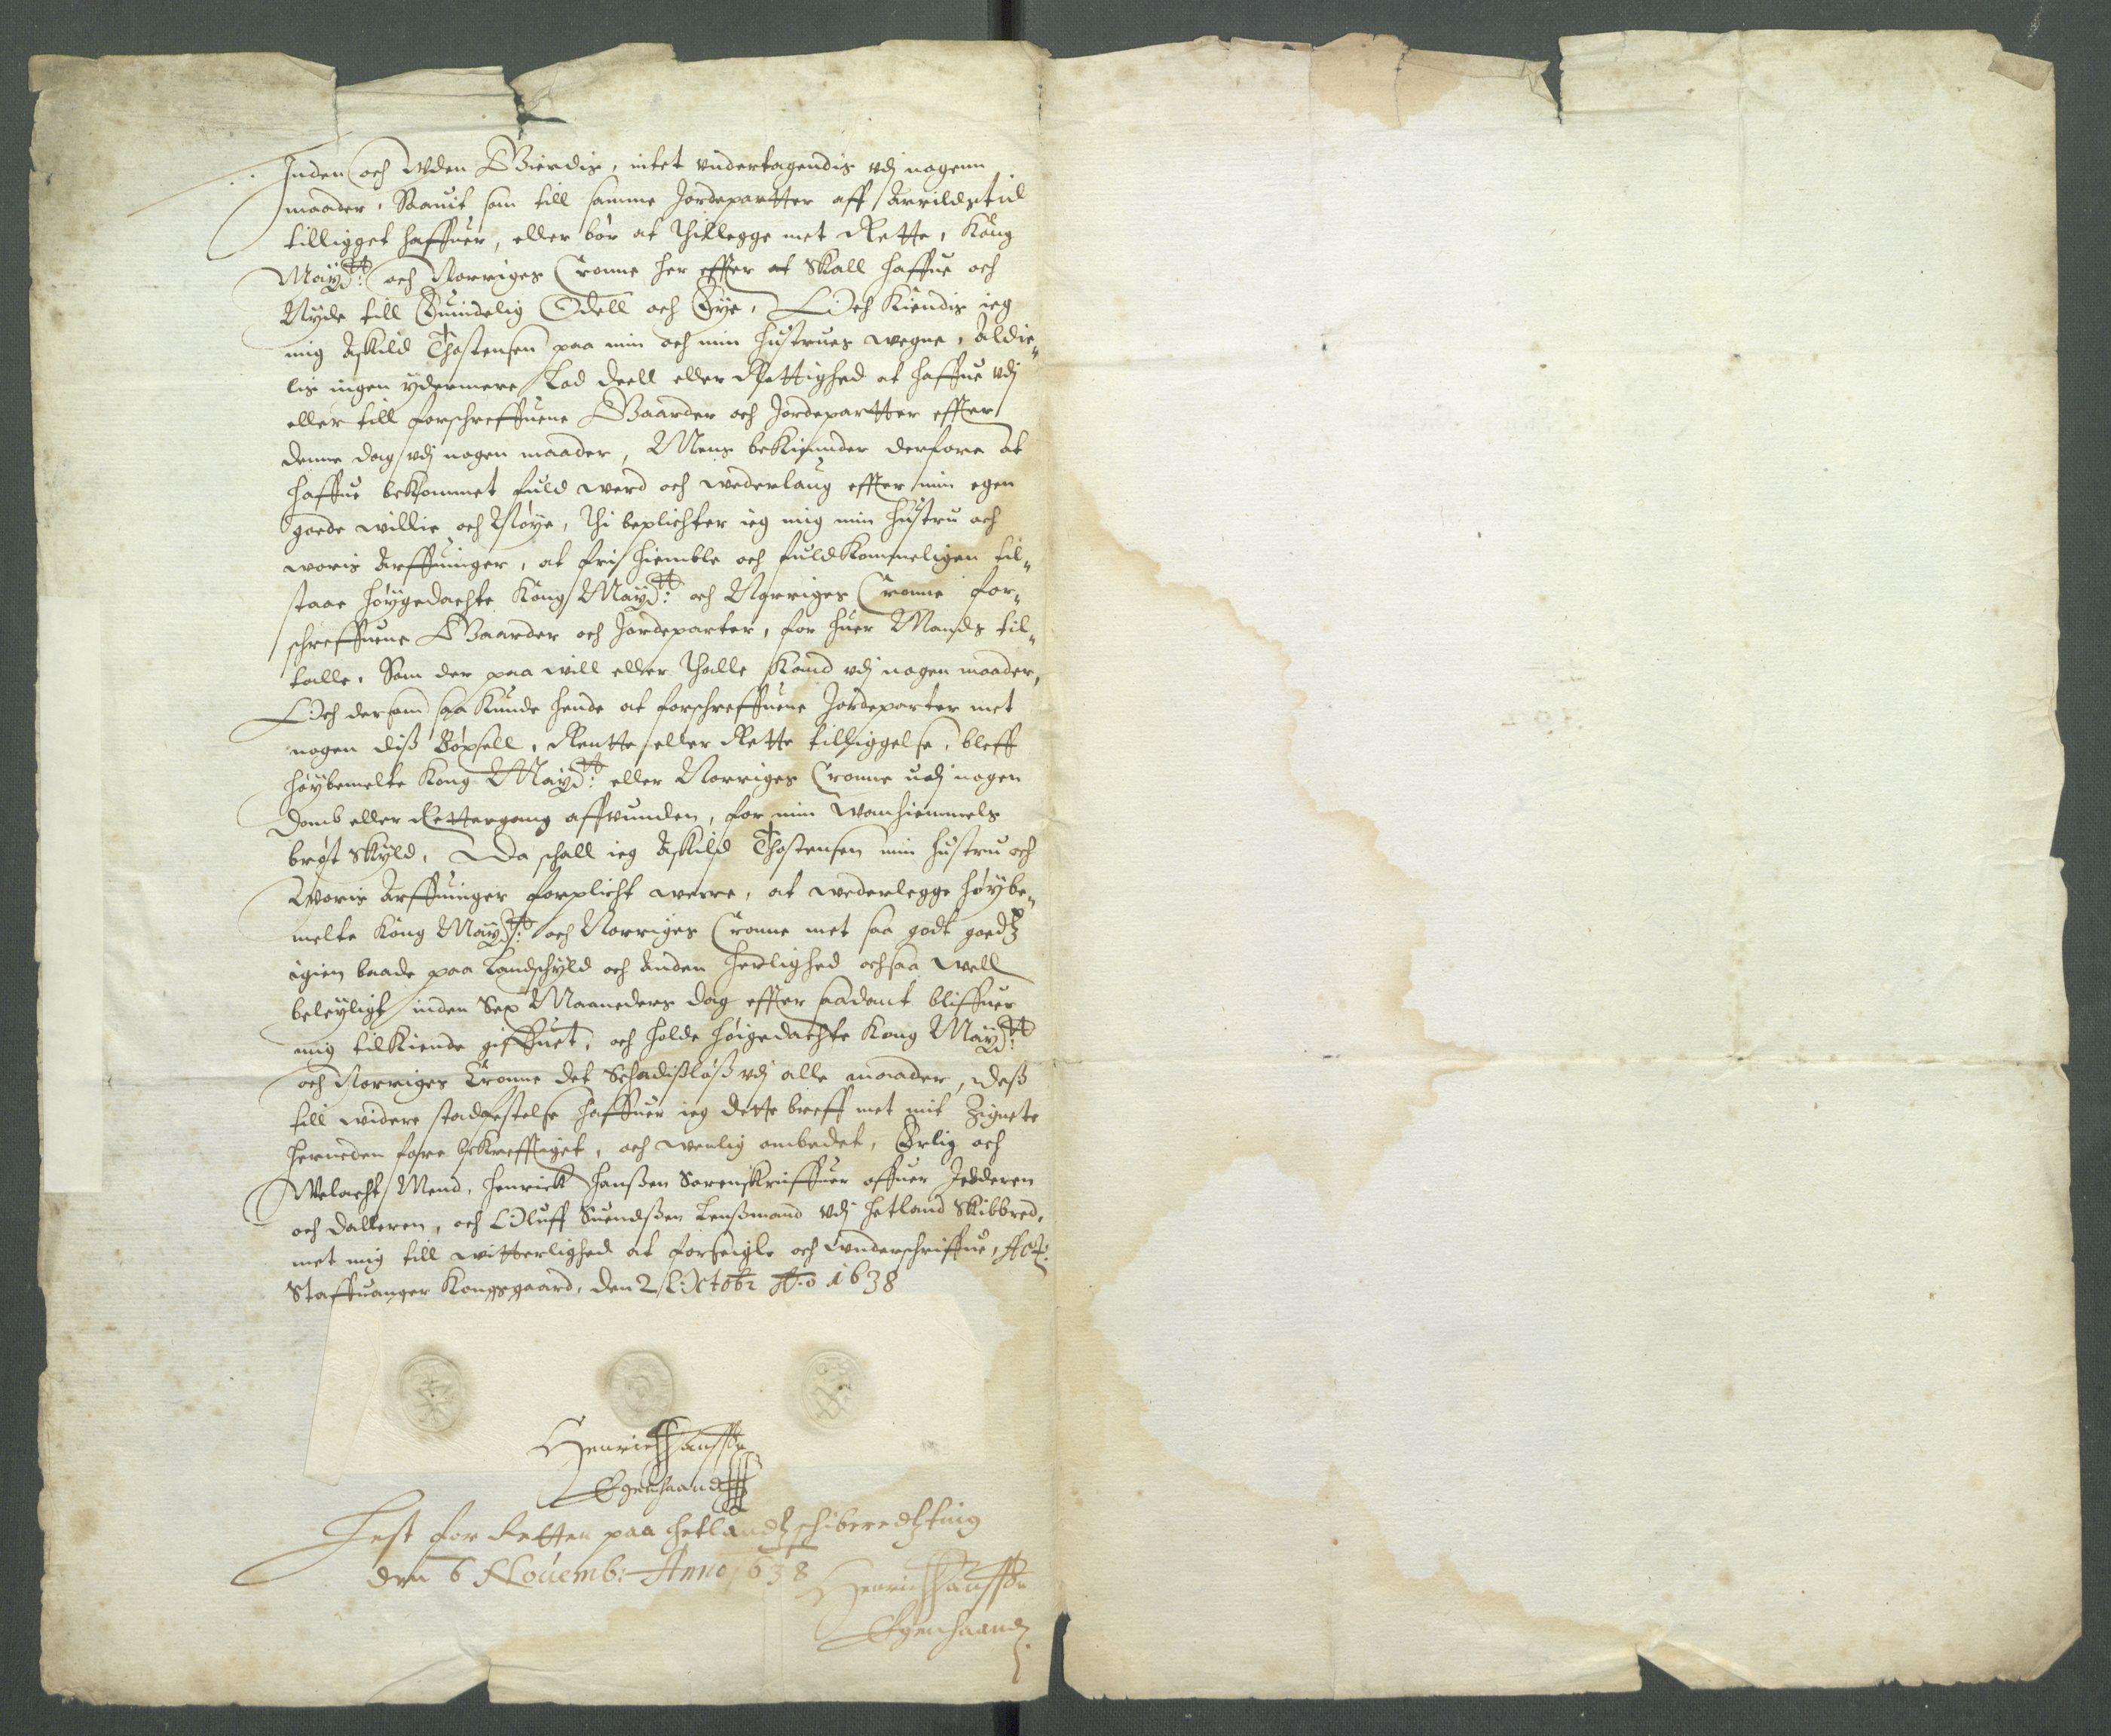 Inden och Uden Gierdis, intet undertagendis udj nogenn
maader, Saauit som till samme Jordepartter aff Arrildstid
tilligget haffuer, eller bør at thillegge met Rette, Kong
Mayd:tt och Norriges Cronne her effter at skall haffue och
Nyde till Euindelig Odell och Eye, Och Kiendis ieg
mig Askild Thostensen paa min och min hustrues wegne, Aldie-
lis ingen ydermere Lod deell eller Rettighed at haffue udj
eller till forschreffuene Gaarder och Jordepartter effter
denne dag udj nogen maader, Mens bekiennder derfore at
haffue bekommet fuld werd och wederlaug effter min egen
goede willie och Nøye, Thi beplichter ieg mig min hustru och
woris Arffuinger, at frj hiemble och fuldkommeligen til-
staae høygedachte Kong Mayd:tt och Norriges Cronne for-
schreffuene Gaarder och Jordeparter, for huer Mands til-
talle, Som der paa will eller thalle kand udj nogen maader,
Och dersom saa kunde hende at forschreffuene Jordeparter met
nogen diß Böxsell, Rentte eller Rette tilliggelse, bleff
høybemelte Kong Mayd:tt eller Norriges Cronne udj nogen
Domb eller Rettergang affvunden, for min Wanhiemmels
brøst skyld, Da schall ieg Askild Thostensen min hustru och
Woris Arffuinger forplicht werre, at wederlegge høybe-
melte Kong Mayd:tt och Norriges Cronne met saa godt goedtz
igien baade paa Landschyld och anden herlighed ochsaa well
beleyligt inden Sex Maaneders dag effter saadant bliffuer
mig tilkiende giffuet, och holde høigedachte Kong Mayd:tt
och Norriges Cronne det Schadisløß udj alle maader, Deß
till widere stadfestelse haffuer ieg dette breff met mit Zignete
herneden fore bekrefftiget, och wenlig ombedet, Erlig och
Welacht Mend, Henrick Hanßen Sorenskriffuer offuer Jedderen
och Dallerne, och Oluff Suendßen Lenßmand udj Hetland Skibbred,
met mig till witterlighed at forseigle och underschriffue, Act:
Staffuanger Kongsgaard, den 2 Octobr Ao 1638
Henrich Hanßen
Egenhaand
Lest for Retten paa Hetlandtz schiberedtz ting
den 6 Nouemb: Anno 1638
Henrich Hanßen
Egenhaand